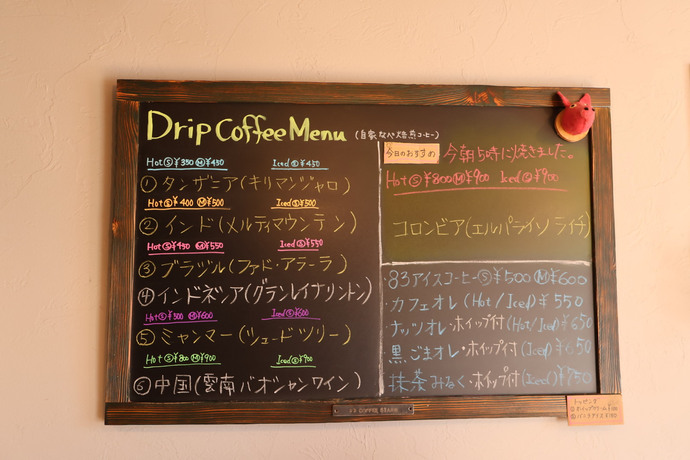 Drip Coffee Menu (自家なべ焙煎コーヒー)
Hot Ⓢ¥350 Ⓜ¥450 Iced Ⓢ¥450
① タンザニア(キリマンジャロ)
Hot Ⓢ¥400 Ⓜ¥500 Iced Ⓢ¥500
② インド(メルティマウンテン)
Hot Ⓢ¥450 Ⓜ¥550 Iced Ⓢ¥550
③ ブラジル(ファド・アラーラ)
④ インドネシア(グランレイナリントン)
Hot Ⓢ¥500 Ⓜ¥600 Iced Ⓢ¥600
⑤ ミャンマー(ツュードツリー)
Hot Ⓢ¥800 Ⓜ¥900 Iced Ⓢ¥900
⑥ 中国(雲南バオシャンワイン)
今日のおすすめ 今朝5時に焼きました。
Hot Ⓢ¥800 Ⓜ¥900 Iced Ⓢ¥900
コロンビア(エルパライソ ライチ)
・83アイスコーヒー Ⓢ¥500 Ⓜ¥600
・カフェオレ (Hot/Iced) ¥550
・ナッツオレ・ホイップ付 (Hot/Iced) ¥650
・黒ごまオレ・ホイップ付 (Iced) ¥650
・抹茶みるく・ホイップ付 (Iced) ¥750
トッピング
COFFEE BEANS